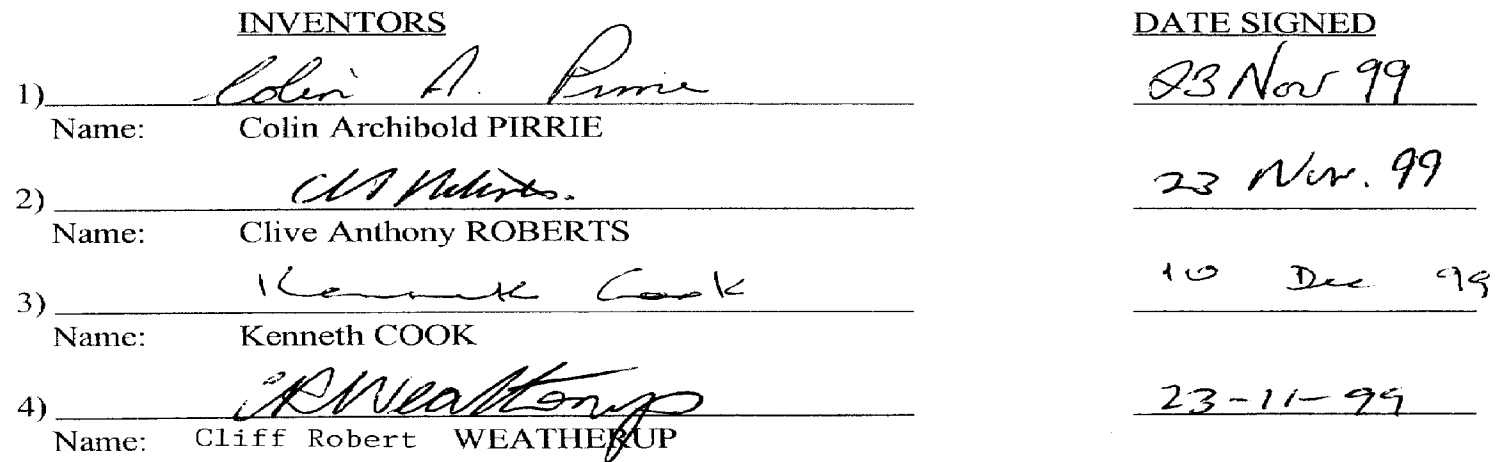 INVENTORS DATE SIGNED
1) Colin A. Pirrie 23 Nov 99
Name: Colin Archibold PIRRIE
2) CA Roberts. 23 Nov. 99
Name: Clive Anthony ROBERTS
3) Kenneth Cook 10 Dec 99
Name: Kenneth COOK
4) CRWeatherup 23-11-99
Name: Cliff Robert WEATHERUP